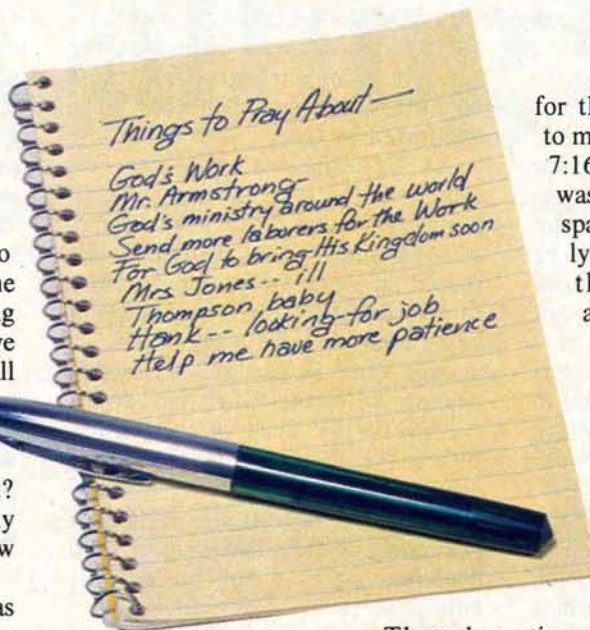 Things to Pray About—
God's Work
Mr. Armstrong-
God's ministry around the world
Send more laborers for the Work
For God to bring His Kingdom soon
Mrs. Jones -- ill
Thompson baby
Hank -- looking for job
Help me have more patience
for th
to m
7:16
was
spa
ly
th
a
o
ne
g
ve
ll
?
y
w
as